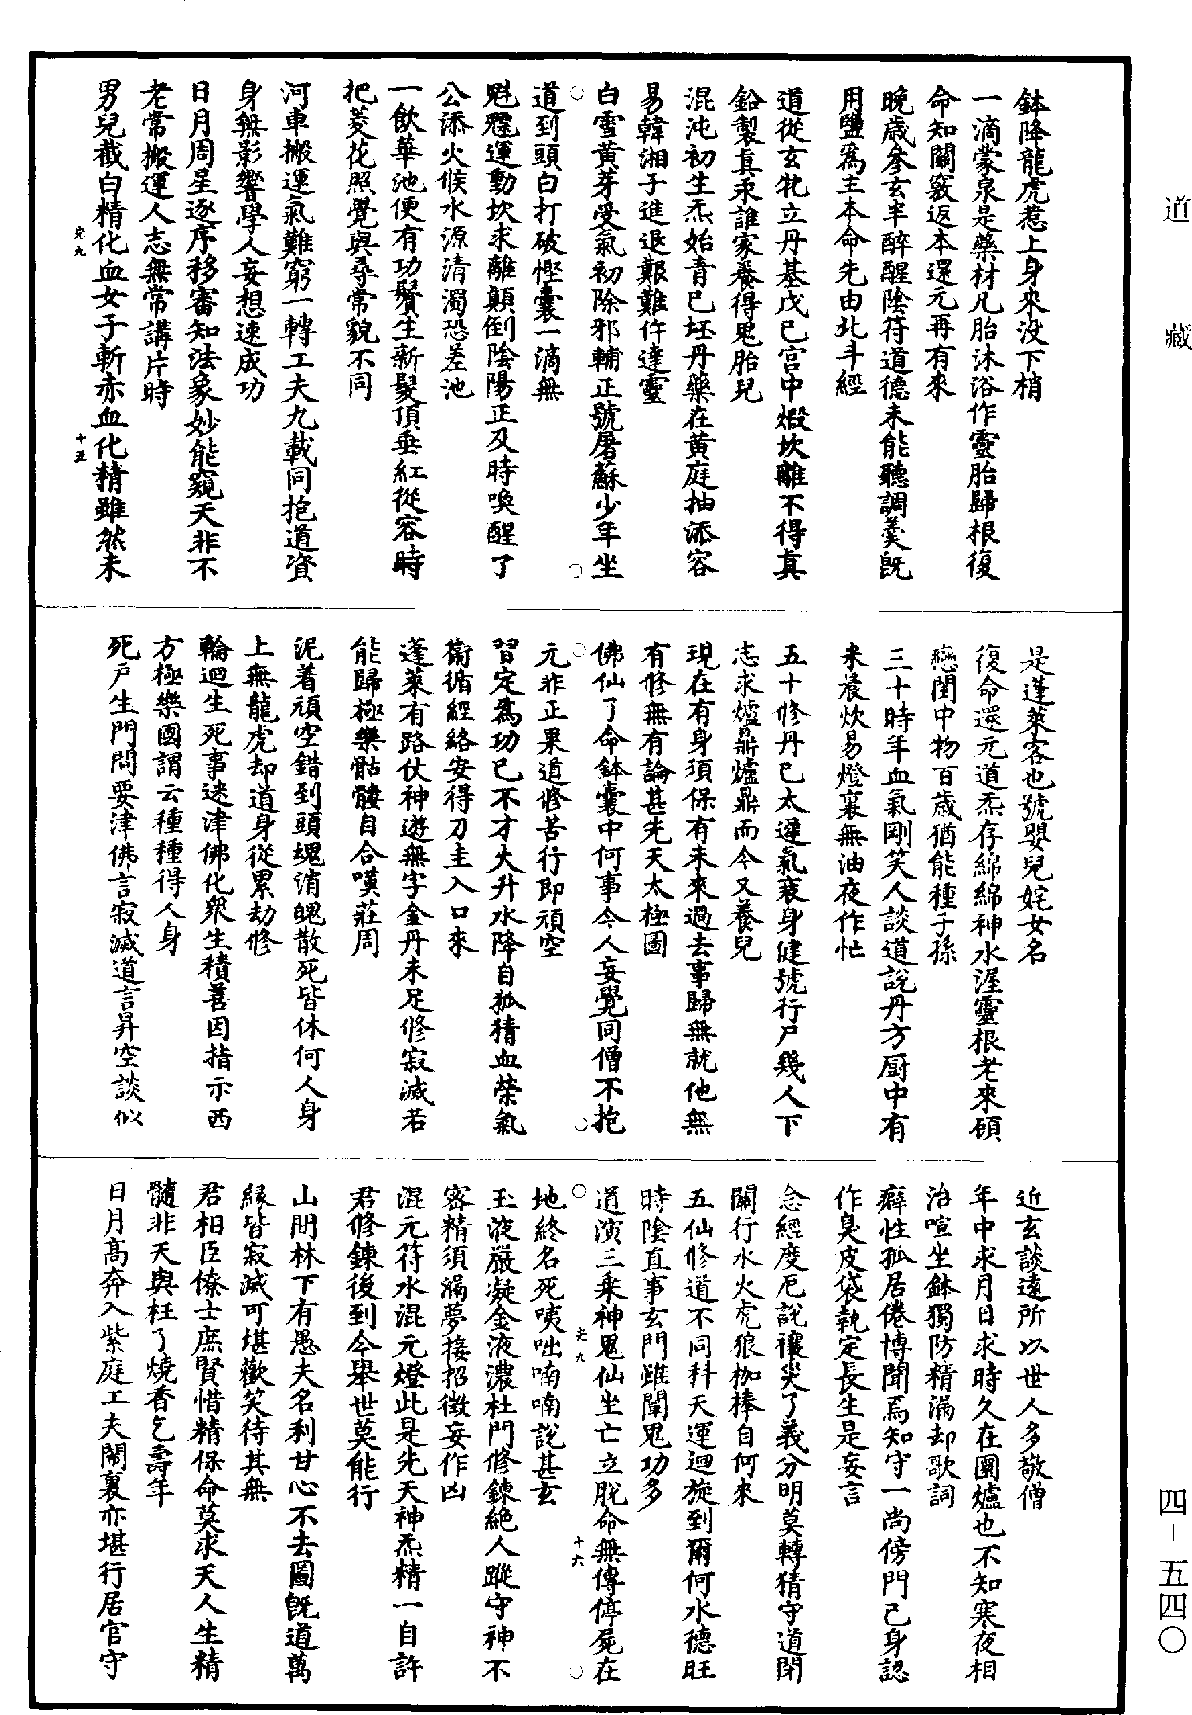 道藏
鉢降龍虎惹上身來沒下梢
一滴蒙泉是藥材凡胎沐浴作靈胎歸根復
命知關竅返本還元再有來
晚歲參玄半醉醒陰符道德未能聽調羹旣
用鹽爲主本命先由北斗經
道從玄牝立丹基戊己宮中煅坎離不得真
鉛製真汞誰家養得鬼胎兒
混沌初生炁始青已坯丹藥在黃庭抽添容
易韓湘子進退艱難仵達靈
白雪黃芽受氣初除邪輔正號屠蘇少年坐
道到頭白打破慳囊一滴無
魁罡運動坎求離顛倒陰陽正及時喚醒了
公添火候水源清濁恐差池
一飲華池便有功鬢生新髮頂垂紅從容時
把菱花照覺與尋常貌不同
河車搬運氣難窮一轉工夫九載同抱道資
身無影響學人妄想速成功
日月周星逐序移審知法象妙能窺天非不
老常搬運人志無常講片時
男兒截白精化血女子斬赤血化精雖然未
炎九
十五
是蓬萊客也號嬰兒姹女名
復命還元道炁存綿綿神水渥靈根老來碩
戀閨中物百歲猶能種子孫
三十時年血氣剛笑人談道說丹方厨中有
米晨炊易燈裏無油夜作忙
五十修丹已太遲氣衰身健號行尸幾人下
志求爐鼎爐鼎而今又養兒
現在有身須保有未來過去事歸無就他無
有修無有論甚先天太極圖
佛仙了命鉢囊中何事今人妄覺同僧不抱
元非正果道修苦行即頑空
習定爲功已不才火升水降自孤精血榮氣
衞循經絡安得刀圭入口來
蓬萊有路仗神遊無字金丹未足修寂滅若
能歸極樂骷髏自合嘆莊周
泥着頑空錯到頭魂消魄散死皆休何人身
上無龍虎却道身從累劫修
輪迴生死事迷津佛化衆生積善因指示西
方極樂國謂云種種得人身
死戶生門問要津佛言寂滅道言昇空談似
近玄談遠所以世人多敬僧
年中求月日求時久在圜爐也不知寒夜相
治喧坐鉢獨防精滿却歌詞
癖性孤居倦博聞焉知守一尚傍門己身認
作臭皮袋執定長生是妄言
念經度厄說禳災了義分明莫轉猜守道閉
關行水火虎狼枷棒自何來
五仙修道不同科天運迴旋到爾何水德旺
時陰直事玄門雖闡鬼功多
道演三乘神鬼仙坐亡立脫命無傳停屍在
炎九
十六
地終名死咦咄喃喃說甚玄
玉液嚴凝金液濃杜門修鍊絶人蹤守神不
密精須漏夢接招徵妄作凶
混元符水混元燈此是先天神炁精一自許
君修鍊後到今舉世莫能行
山間林下有愚夫名利甘心不去圖旣道萬
緣皆寂滅可堪歡笑待其無
君相臣僚士庶賢惜精保命莫求天人生精
髓非天與枉了燒香乞壽年
日月高奔入紫庭工夫鬧裏亦堪行居官守
四－五四〇